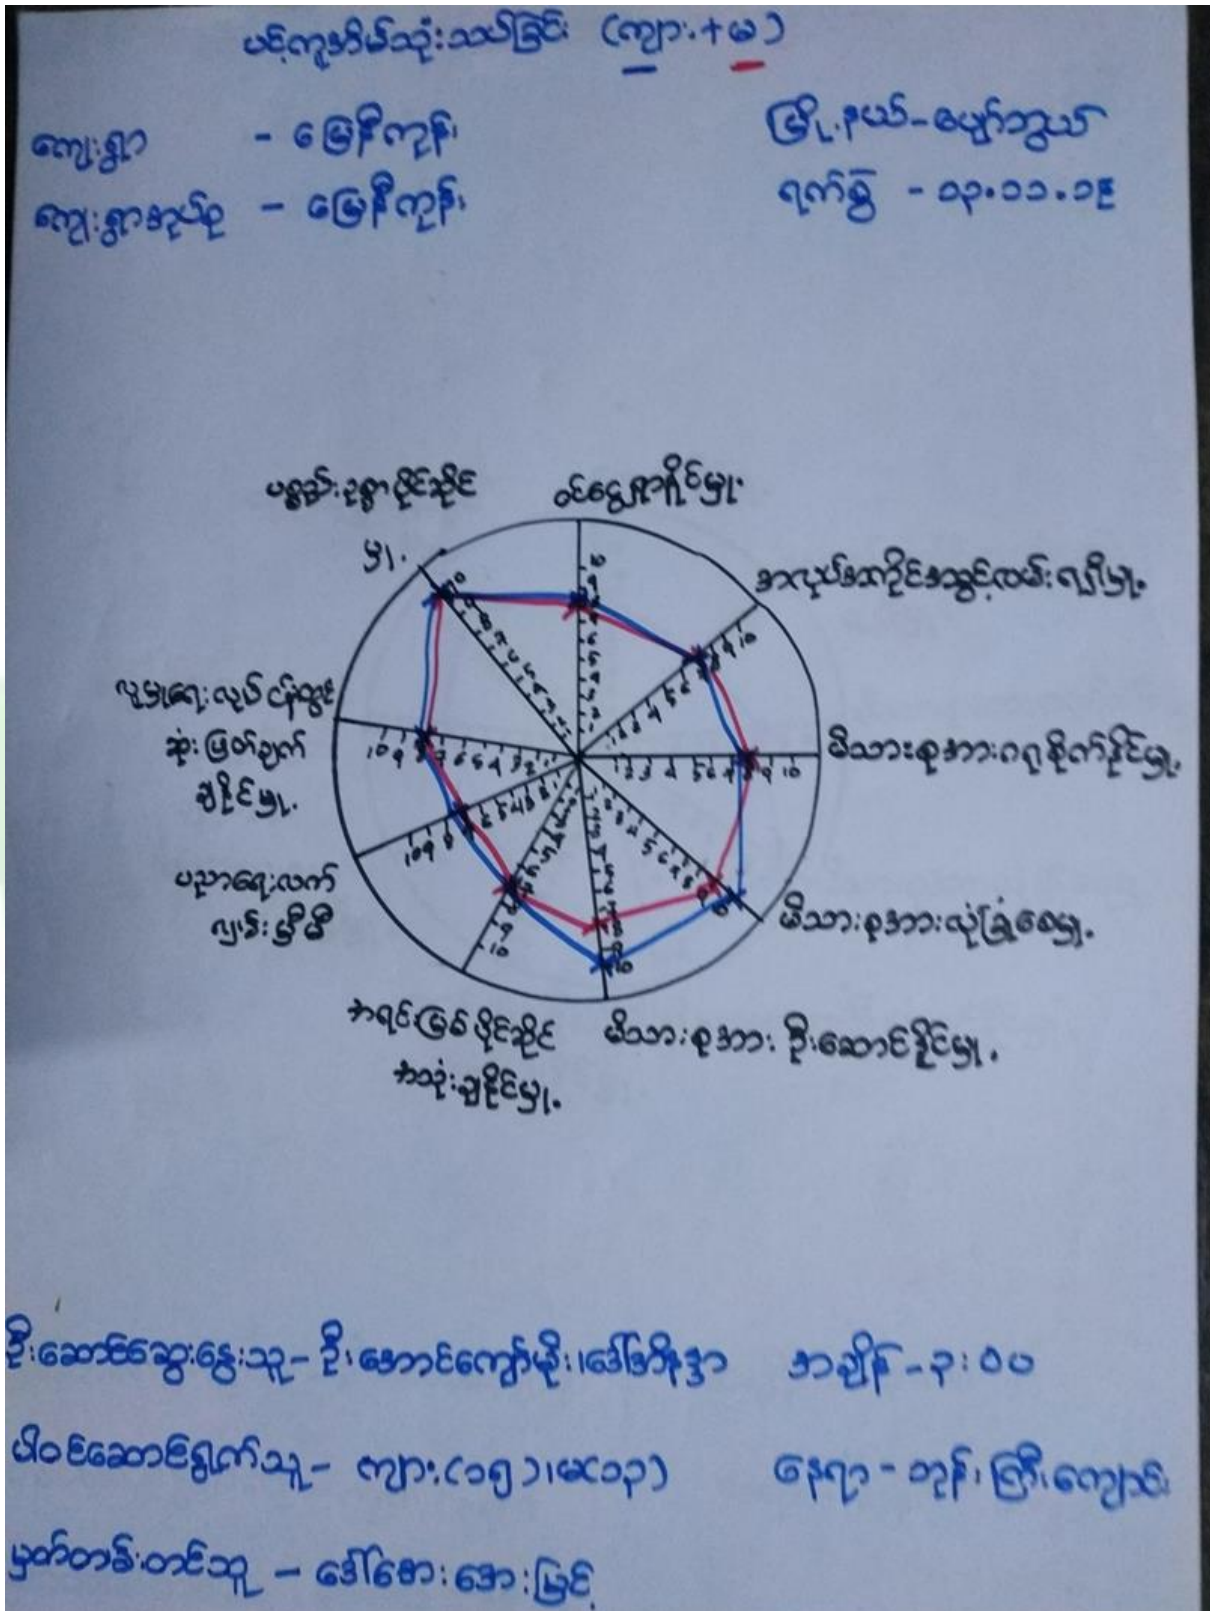 ပင့်ကူအိမ်သုံးသပ်ခြင်း (ကျား+မ)
ကျေးရွာ - မြေနီကုန်း
မြို့နယ်-ပျော်ဘွယ်
ကျေးရွာအုပ်စု - မြေနီကုန်း
ရက်စွဲ - ၁၃.၁၁.၁၉
ပစ္စည်းဥစ္စာပိုင်ဆိုင်
မှု.
ဝင်ငွေရှာနိုင်မှု.
အလုပ်အကိုင်အခွင့်လမ်းရရှိမှု.
မိသားစုအားဂရုစိုက်နိုင်မှု.
မိသားစုအားလုံခြုံစေမှု.
မိသားစုအား ဦးဆောင်နိုင်မှု.
အရင်းမြစ်ပိုင်ဆိုင်
အသုံးချနိုင်မှု.
ပညာရေးလက်
လှမ်းမှီမှီ
လူမှုရေးလုပ်ငန်းတွင်
ဆုံးဖြတ်ချက်
ချနိုင်မှု.
ဦးဆောင်ဆွေးနွေးသူ- ဦးအောင်ကျော်မိုး၊ဒေါ်အိန္ဒာ
အချိန် - ၃:၀၀
ပါဝင်ဆောင်ရွက်သူ- ကျား(၁၅)၊မ(၁၃)
နေရာ - ဘုန်းကြီးကျောင်း
မှတ်တမ်းတင်သူ - ဒေါ်အေးအေးမြင့်